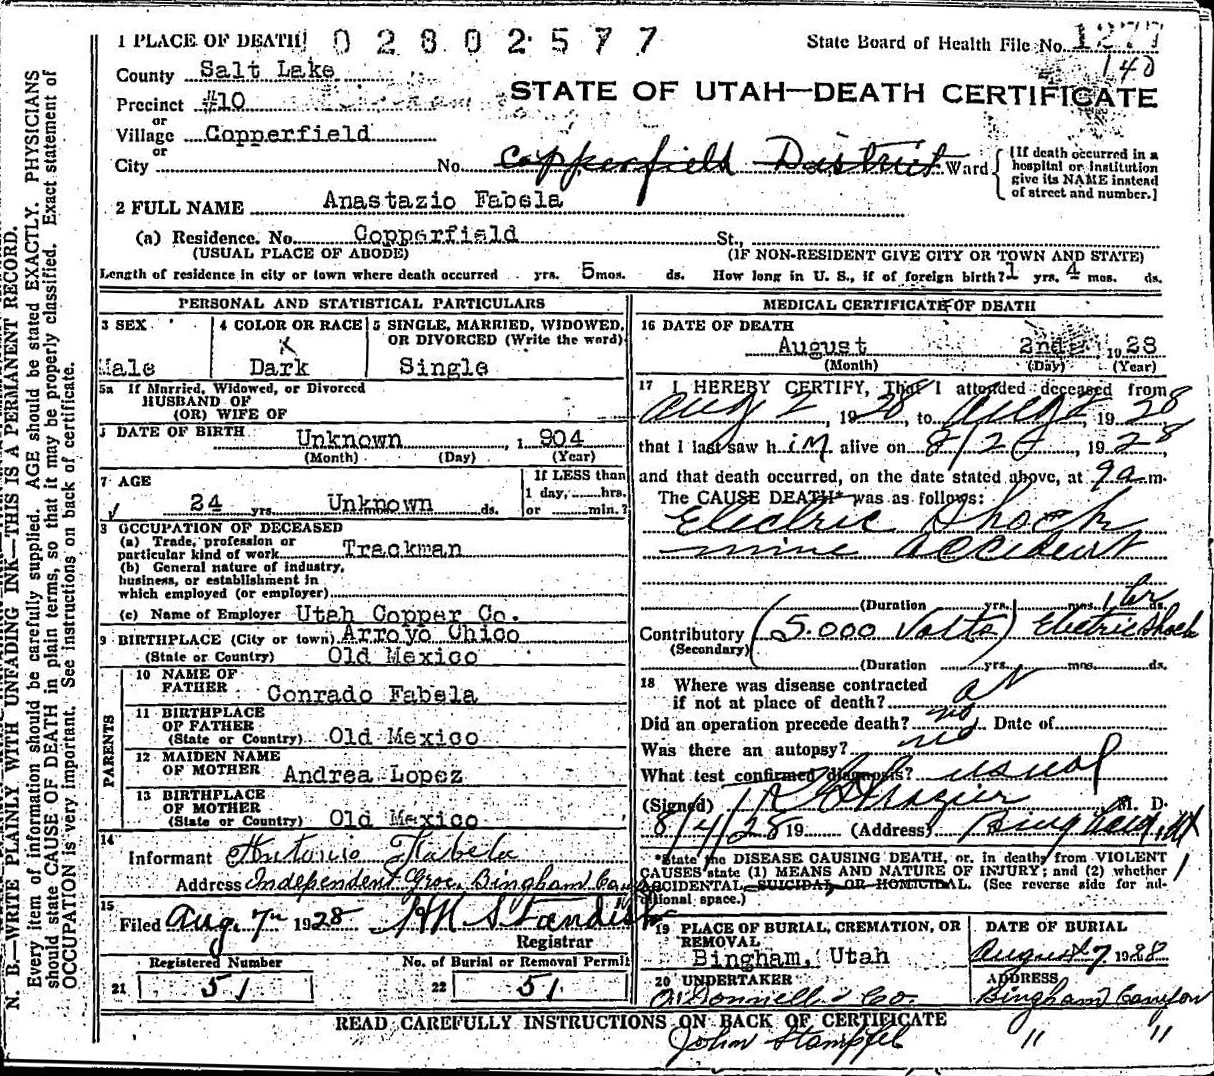 1 PLACE OF DEATH 0 2 8 0 2 5 7 7 State Board of Health File No. 1277
County Salt Lake 140
Precinct #10 STATE OF UTAH—DEATH CERTIFICATE
or
Village Copperfield
or
City No. Copperfield District Ward
[If death occurred in a hospital or institution give its NAME instead of street and number.]
2 FULL NAME Anastazio Fabela
(a) Residence. No. Copperfield St.,
(USUAL PLACE OF ABODE) (IF NON-RESIDENT GIVE CITY OR TOWN AND STATE)
Length of residence in city or town where death occurred yrs. 5 mos. ds. How long in U. S., if of foreign birth? 1 yrs. 4 mos. ds.
PERSONAL AND STATISTICAL PARTICULARS
3 SEX
Male
4 COLOR OR RACE
x
Dark
5 SINGLE, MARRIED, WIDOWED, OR DIVORCED (Write the word)
Single
5a If Married, Widowed, or Divorced
HUSBAND OF
(OR) WIFE OF
DATE OF BIRTH Unknown , 1 904
(Month) (Day) (Year)
7 AGE
24 yrs. Unknown mos. ds.
If LESS than
1 day, hrs.
or min.?
8 OCCUPATION OF DECEASED
(a) Trade, profession or
particular kind of work Trackman
(b) General nature of industry,
business, or establishment in
which employed (or employer)
(c) Name of Employer Utah Copper Co.
9 BIRTHPLACE (City or town) Arroyo Chico
(State or Country) Old Mexico
PARENTS
10 NAME OF
FATHER Conrado Fabela
11 BIRTHPLACE
OF FATHER
(State or Country) Old Mexico
12 MAIDEN NAME
OF MOTHER Andrea Lopez
13 BIRTHPLACE
OF MOTHER
(State or Country) Old Mexico
14
Informant Antonio Fabela
Address Independent Groc. Bingham Can
15
Filed Aug. 7th 1928 HN Standish
Registrar
Registered Number No. of Burial or Removal Permit
21 51 22 51
MEDICAL CERTIFICATE OF DEATH
16 DATE OF DEATH
August 2nd 1928
(Month) (Day) (Year)
17 I HEREBY CERTIFY, That I attended deceased from
Aug 2, 1928, to Aug 2, 1928
that I last saw him alive on 8/2, 1928,
and that death occurred, on the date stated above, at 9 a m.
The CAUSE DEATH* was as follows:
Electric Shock
mine accident
(Duration yrs. mos. 1 hr ds.
Contributory (5.000 Volts) Electric Shock
(Secondary)
(Duration yrs. mos. ds.
18 Where was disease contracted
if not at place of death? at
Did an operation precede death? no Date of
Was there an autopsy? no
What test confirmed diagnosis? usual
(Signed) Frazier, M. D.
8/4/28 19 (Address) Bingham, Ut
*State the DISEASE CAUSING DEATH, or, in deaths from VIOLENT
CAUSES state (1) MEANS AND NATURE OF INJURY; and (2) whether
ACCIDENTAL, SUICIDAL OR HOMICIDAL. (See reverse side for additional space.)
19 PLACE OF BURIAL, CREMATION, OR
REMOVAL
Bingham, Utah
DATE OF BURIAL
August 7 1928
20 UNDERTAKER
O'Donnell & Co.
ADDRESS
Bingham Canyon
READ CAREFULLY INSTRUCTIONS ON BACK OF CERTIFICATE
John Stampfel " "
N. B.—WRITE PLAINLY WITH UNFADING INK—THIS IS A PERMANENT RECORD.
Every item of information should be carefully supplied. AGE should be stated EXACTLY. PHYSICIANS
should state CAUSE OF DEATH in plain terms, so that it may be properly classified. Exact statement of
OCCUPATION is very important. See instructions on back of certificate.